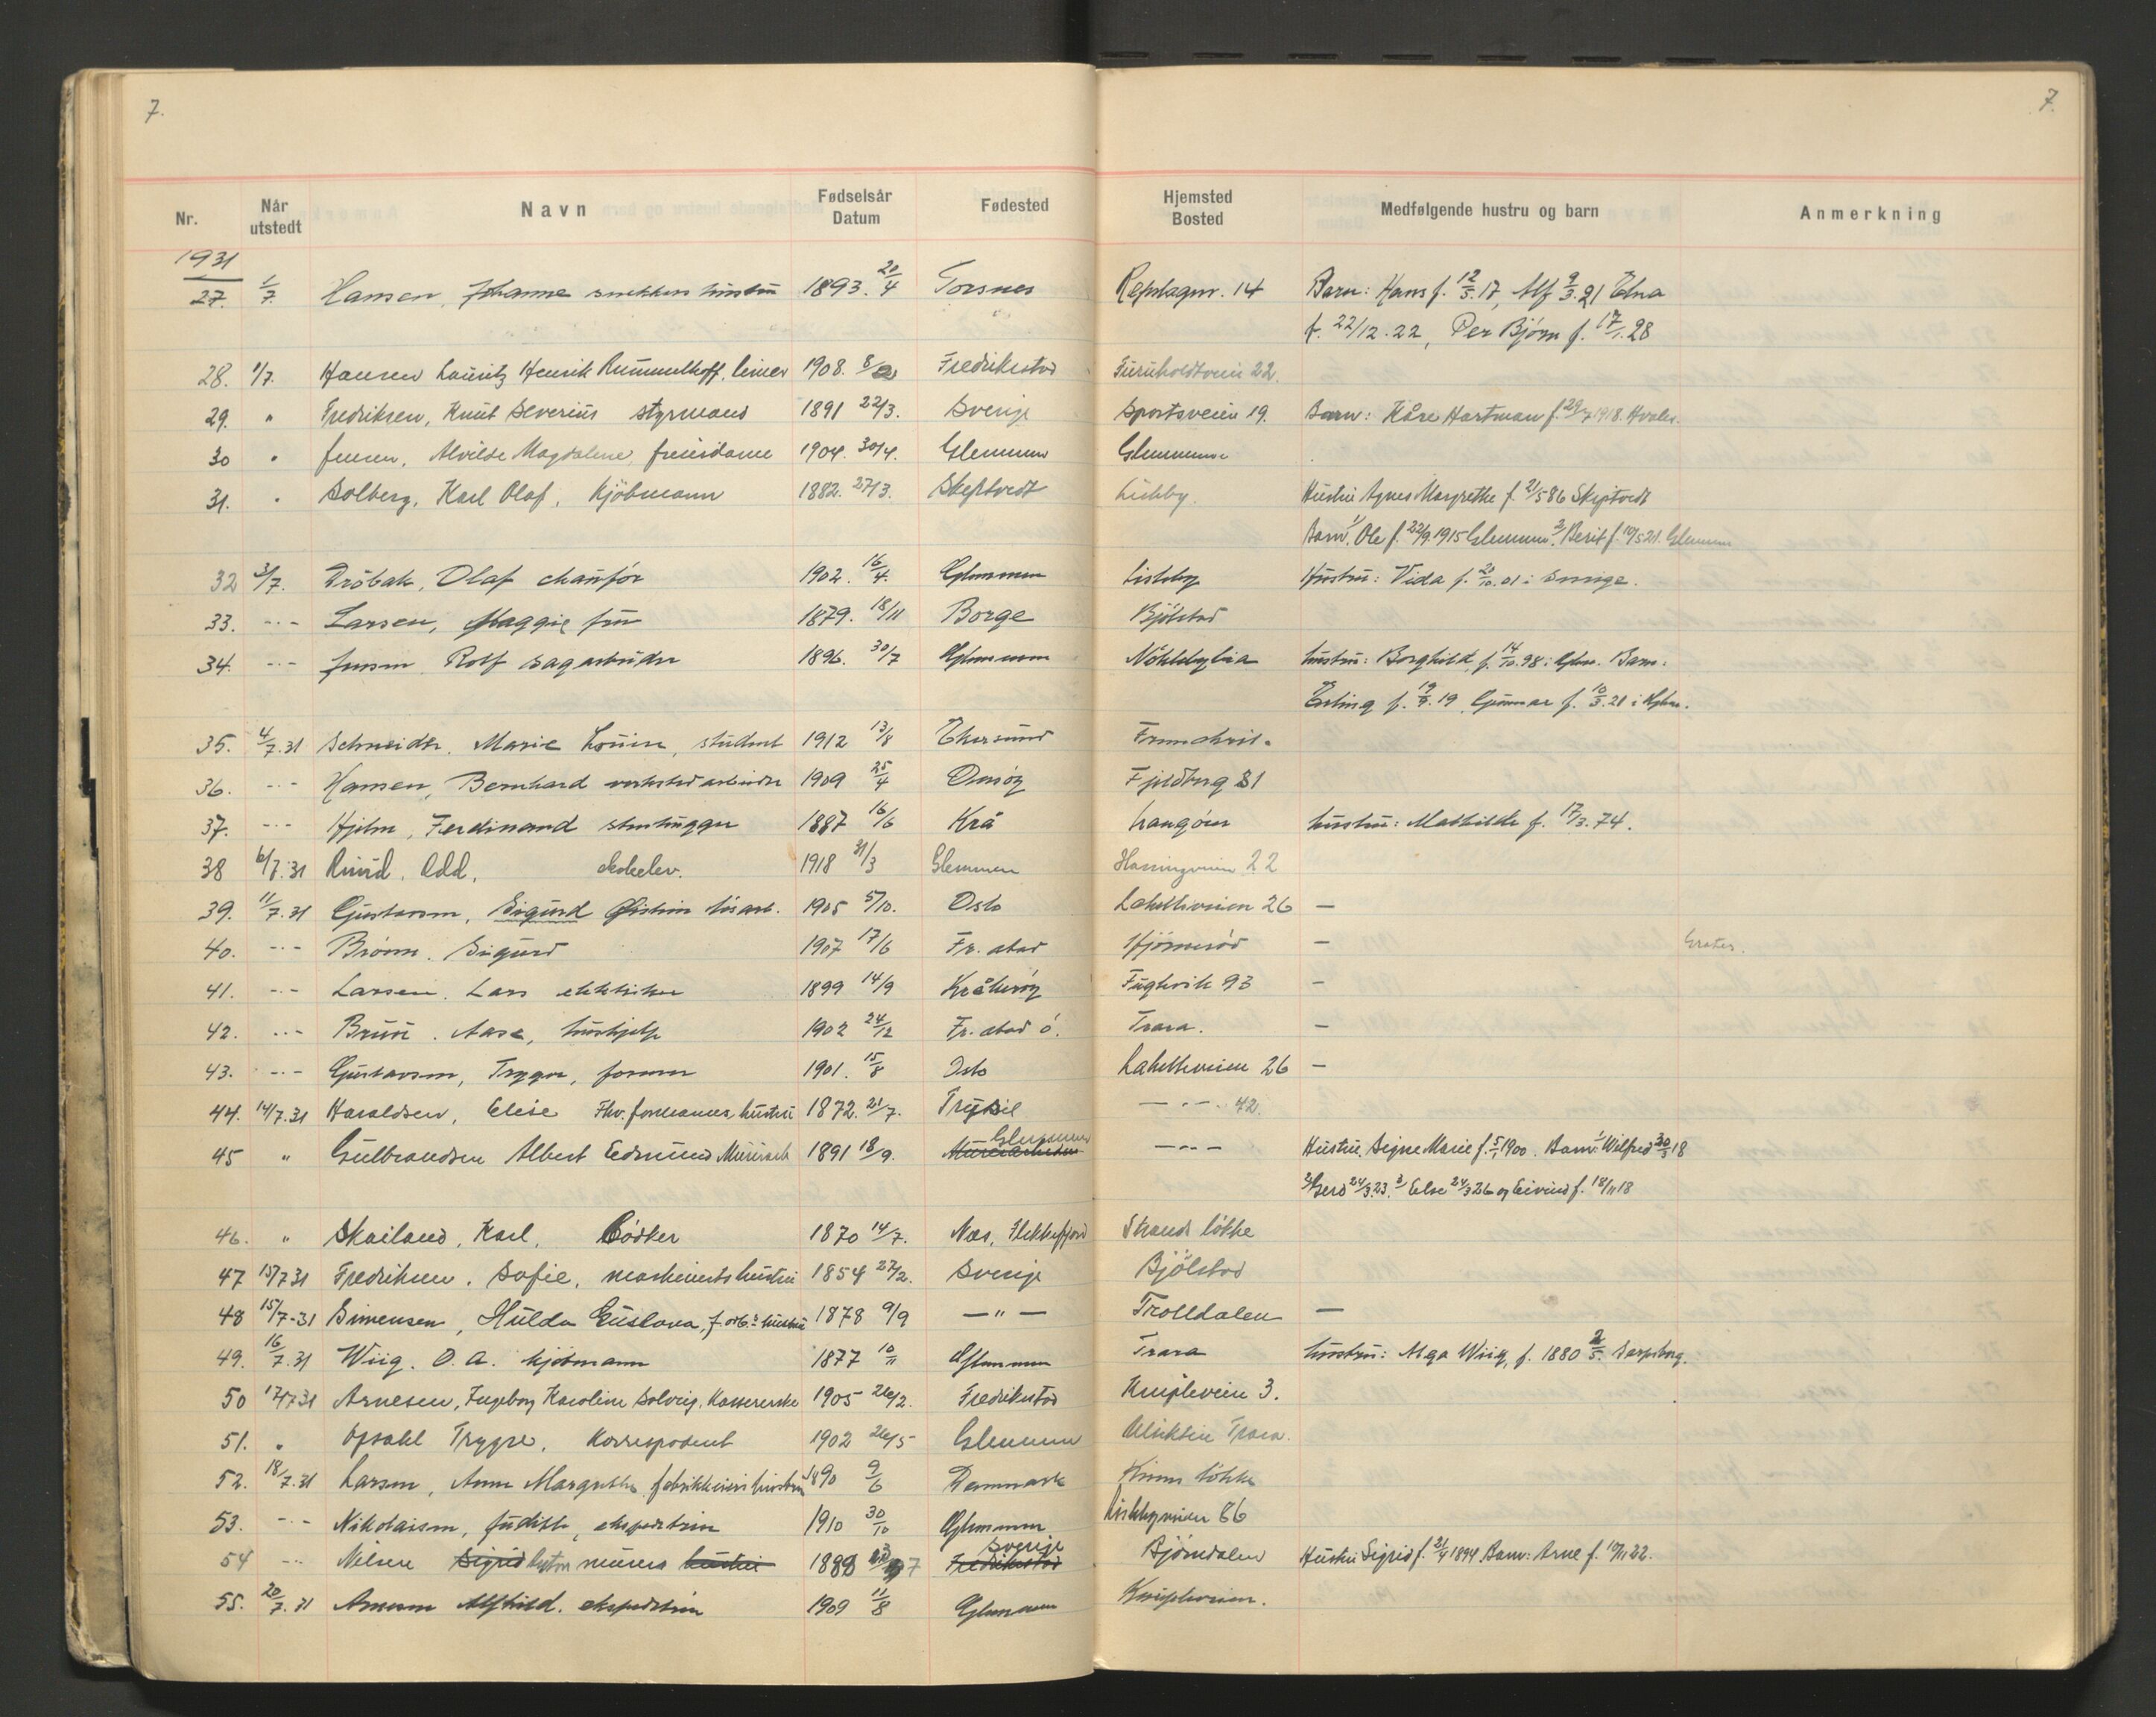 7.
7.
Nr. Når utstedt Navn Fødselsår Datum Fødested Hjemsted Bosted Medfølgende hustru og barn Anmerkning
1931
27. 1/7. Hansen, Johanne snekkers hustru 1893. 20/4 Torsnes Repslagerv. 14 Barn: Hans f. 12/5.17, Alf 9/3.21 Edna
f. 22/12.22, Per Bjørn f. 17/1.28
28. 1/7. Hansen Lauritz Henrik Rummelhoff, 1908. 8/2 Fredrikstad Furuholdtveien 22.
29. " Fredriksen, Knut Severius styrmand 1891 22/3. Sverige Sportsveien 19. Barn: Kåre Hartman f. 29/7 1918. Hvaler.
30 " Jensen, Alvilde Magdalene, frisørdame 1904. 30/4. Glemmen Glemmen
31. " Solberg, Karl Olaf, Kjöbmann 1882. 27/3. Skeptvedt Lisleby. Hustru Agnes Margrethe f. 21/5 86 Skiptvedt
Barn. 1/ Ole f. 22/9.1915 Glemmen. 2/ Berit f. 10/5 21. Glemmen
32 3/7. Dröbak, Olaf chauför 1902. 16/4. Glemmen Lisleby Hustru: Vida f. 20/10.01 i Sverige.
33. -"- Larsen, Maggie fru 1879. 18/11 Borge Bjölstad
34. -"- Jensen, Rolf sagarbeider 1896. 30/7 Glemmen Nökleby hustru: Borghild, f. 14/10.98 i Glem. Barn:
Erling f. 19/9.19 Gunnar f. 10/3.21 i Glem.
35. 4/7.31 Schneider, Marie Louise, student 1912 13/8 Ekersund
36. -"- Hansen, Bernhard verkstedarbeider 1909 25/4 Onsöy Fjeldberg 81
37. -"- Hjelm, Ferdinand stenhugger 1887 16/6 Krå Langöen hustru: Mathilde f. 17/3.74.
38 6/7.31 Ruud, Odd, skoleelev. 1918 31/3 Glemmen 22
39. 11/7.31 Gustavsen, Sigurd Øistein løsarb. 1905 5/10. Oslo Lahelleveien 26 —
40. -"- Brönn, Sigurd 1907 17/6 Fr.stad Hjörnerød — Gratis.
41. -"- Larsen, Lars elektriker 1899 14/9 Kråkeröy Fuglevik 93 —
42. -"- Bruu, Aase, hushjelp 1902 24/12 Fr.stad ö. Trara. —
43. -"- Gustavsen, Trygve, former 1901. 15/8 Oslo Lahelleveien 26 —
44. 14/7.31 Haraldsen, Elise Fhv. formanns hustru 1872. 21/7. Trysil —"— 42.
45 " Gulbrandsen Albert Edmund Murerarb 1891 18/9. Murerarbeider Glemmen —"— Hustru. Signe Marie f. 5/1 1900. Barn: 1/ Wilfred 30/3 18
2/ Gerd 24/3.23. 3/ Else 24/3 26 og Eivind f. 18/11 18
46. " Skailand, Karl, Bödker 1870 14/7. Næs, Flekkefjord Strands lökke
47 15/7 31 Fredriksen, Sofie, maskinists hustru 1854 27/2. Sverige Bjölstad
48 15/7-31 Simensen, Hulda Gustava, f.arb.s hustru 1878 9/9 —"— Trolldalen —
49. 16/7.31 Wiig, O. A. kjöbmann 1877 10/11 Glemmen Trara hustru: Alga Wiig, f. 1880 2/5. Sarpsborg.
50 17/7 31 Arnesen, Ingeborg Karoline Solveig, Kassererske 1905 26/2. Fredrikstad Knipleveien 3.
51. " Opsahl Trygve, Korrespodent 1902 26/5 Glemmen Trara.
52. 18/7.31 Larsen, Anne Margrethe, fabrikkeiers hustru 1890 9/6 Danmark lökke
53. -"- Nikolaisen, Judith, ekspeditrice 1910 30/10 Glemmen Lislebyveien 86
54 -"- Nilsen Sigrid murers hustru 1898 7 Fredrikstad Sverige Bjørndalen Hustru Sigrid f. 21/4 1894. Barn: Arne f. 10/11 22.
55. 20/7.31 Arnesen Alfhild. ekspeditrice 1909 11/8 Glemmen Kniplveien.